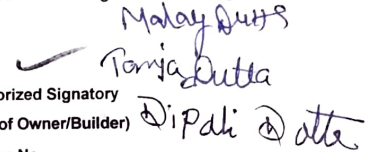 Malay Dutta
Tanja Dutta
orized Signatory
of Owner/Builder) Dipali Dutta